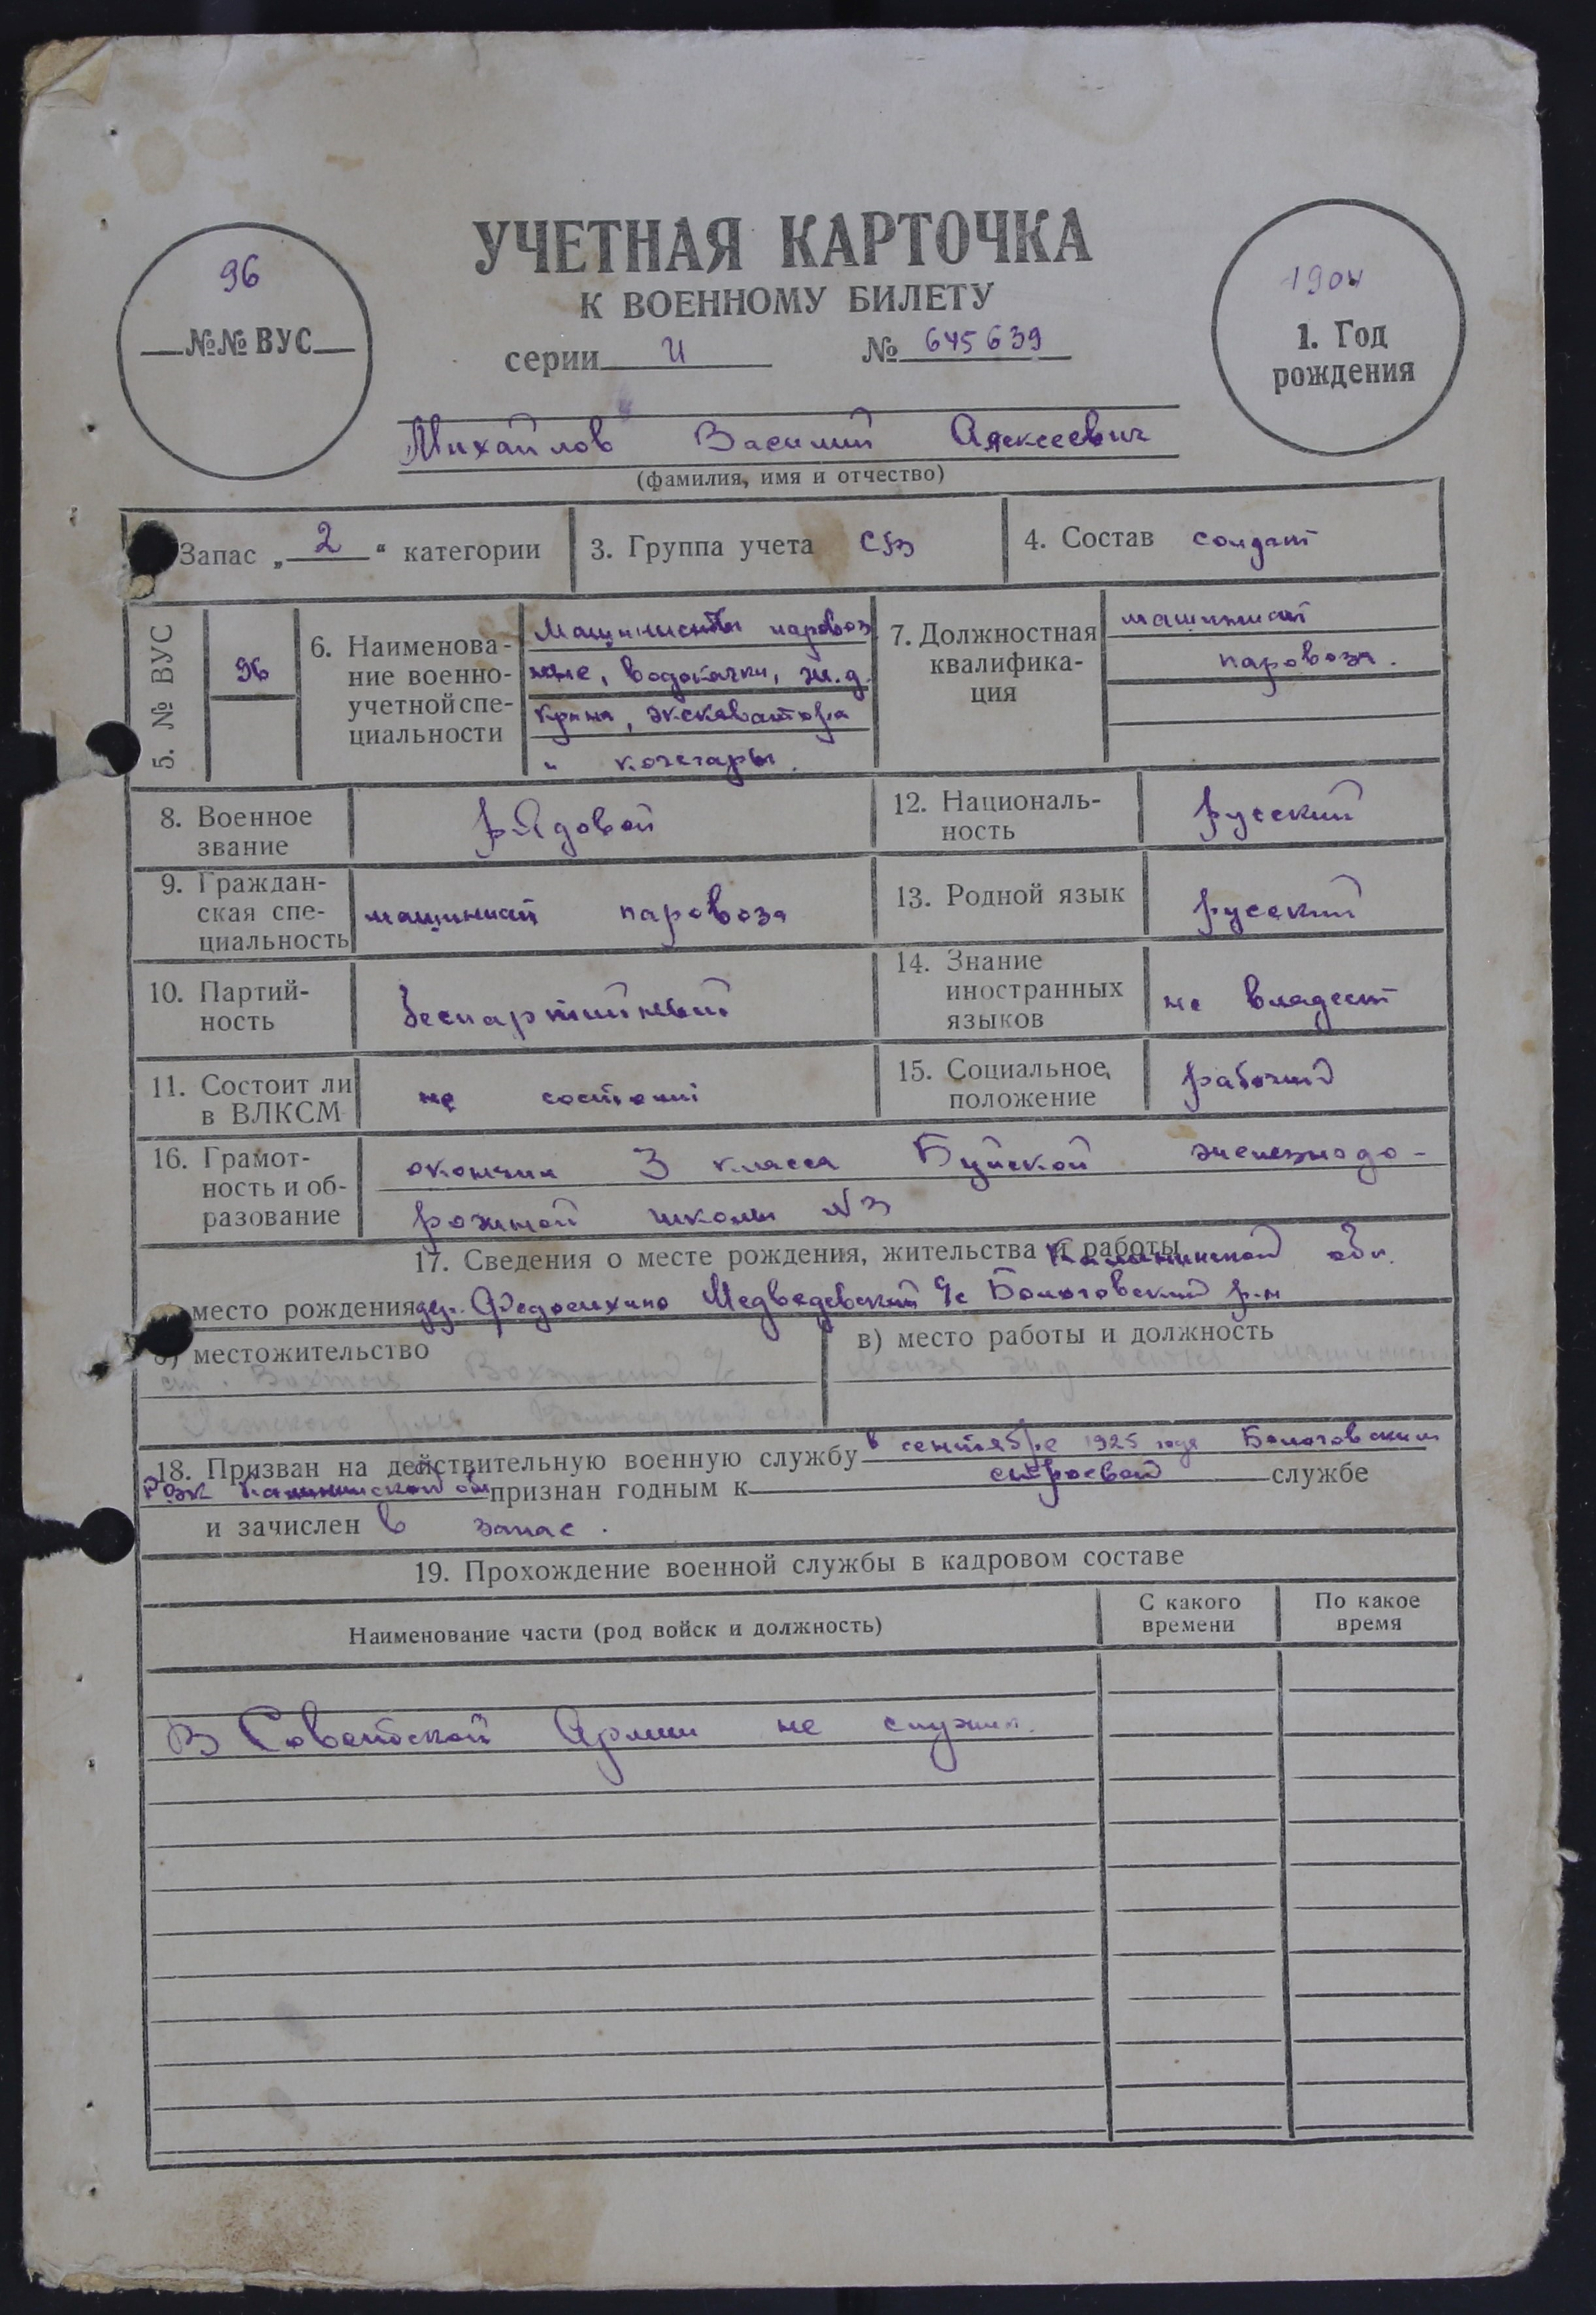 УЧЕТНАЯ КАРТОЧКА
К ВОЕННОМУ БИЛЕТУ
серии И № 645639
96
№№ ВУС
1904
1. Год
рождения
Михайлов Василий Алексеевич
(фамилия, имя и отчество)
Запас „ 2 “ категории
3. Группа учета
4. Состав солдат
5. № ВУС
96
6. Наименова-
ние военно-
учетной спе-
циальности
Машинисты паровоз
ные, водокачки, ж.д.
крана, экскаватора
и кочегары.
7. Должностная
квалифика-
ция
машинист
паровоза.
8. Военное
звание
рядовой
12. Националь-
ность
русский
9. Граждан-
ская спе-
циальность
машинист паровоза
13. Родной язык
русский
10. Партий-
ность
беспартийный
14. Знание
иностранных
языков
не владеет
11. Состоит ли
в ВЛКСМ
не состоит
15. Социальное
положение
рабочий
16. Грамот-
ность и об-
разование
окончил 3 класса Буйской железнодо-
рожной школы №3
17. Сведения о месте рождения, жительства и работы
Калининской обл.
место рождения дер. Федосихино Медведевский с/с Бологовский р-н
б) местожительство
ст. Вохтога Вохтожский с/с
района Вологодской обл.
в) место работы и должность
ж.д. ветка машинист
18. Призван на действительную военную службу в сентябре 1925 года Бологовским
РВК Калининской обл признан годным к строевой службе
и зачислен в запас.
19. Прохождение военной службы в кадровом составе
Наименование части (род войск и должность)
С какого
времени
По какое
время
В Советской Армии не служил.